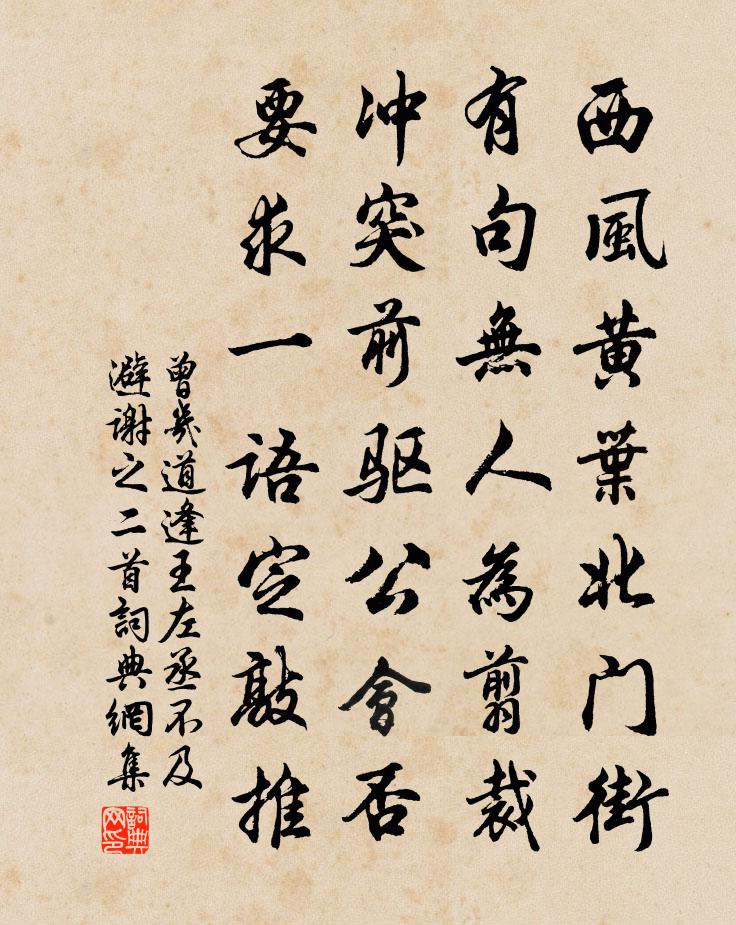 西風黄葉北门街
有句無人為剪裁
冲突前驱公會否
要求一语定敲推
曾幾道逢王左丞不及
避谢之二首詞典網集
詞典网印